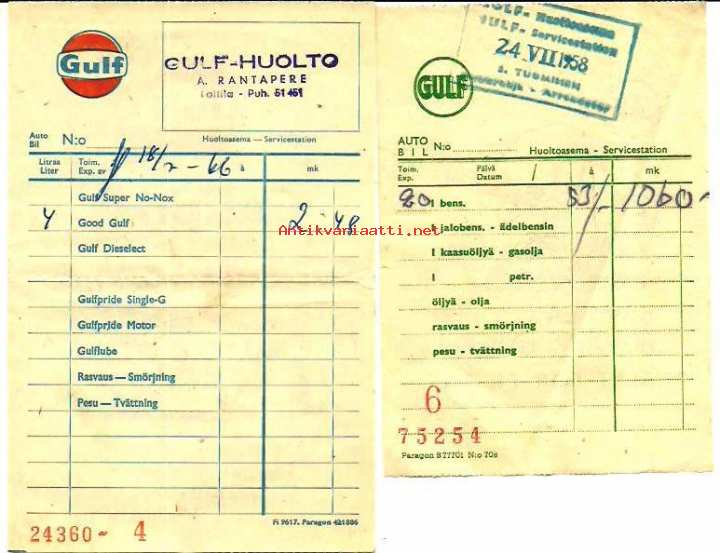 Gulf
GULF-HUOLTO
A. RANTAPERE
Laitila - Puh. 51 451
Auto
Bil
N:o
Huoltoasema — Servicestation
Litraa
Liter
Toim.
Exp. av
18/7 - 66
à
mk
Gulf Super No-Nox
4 Good Gulf 2 48
Gulf Dieselect
Gulfpride Single-G
Gulfpride Motor
Gulflube
Rasvaus — Smörjning
Pesu — Tvättning
Fi 9617. Paragon 421886
24360~ 4
GULF - Huoltoasema
GULF - Servicestation
24. VII 1958
TUOMINEN
GULF
AUTO
BIL
N:o
Huoltoasema - Servicestation
Toim.
Exp.
Päivä
Datum
/
à
mk
20 l bens. 53/- 1060-
l jalobens. - ädelbensin
l kaasuöljyä - gasolja
l petr.
öljyä - olja
rasvaus - smörjning
pesu - tvättning
6
75254
Paragon B77701 N:o 70s
Antikvariaatti.net